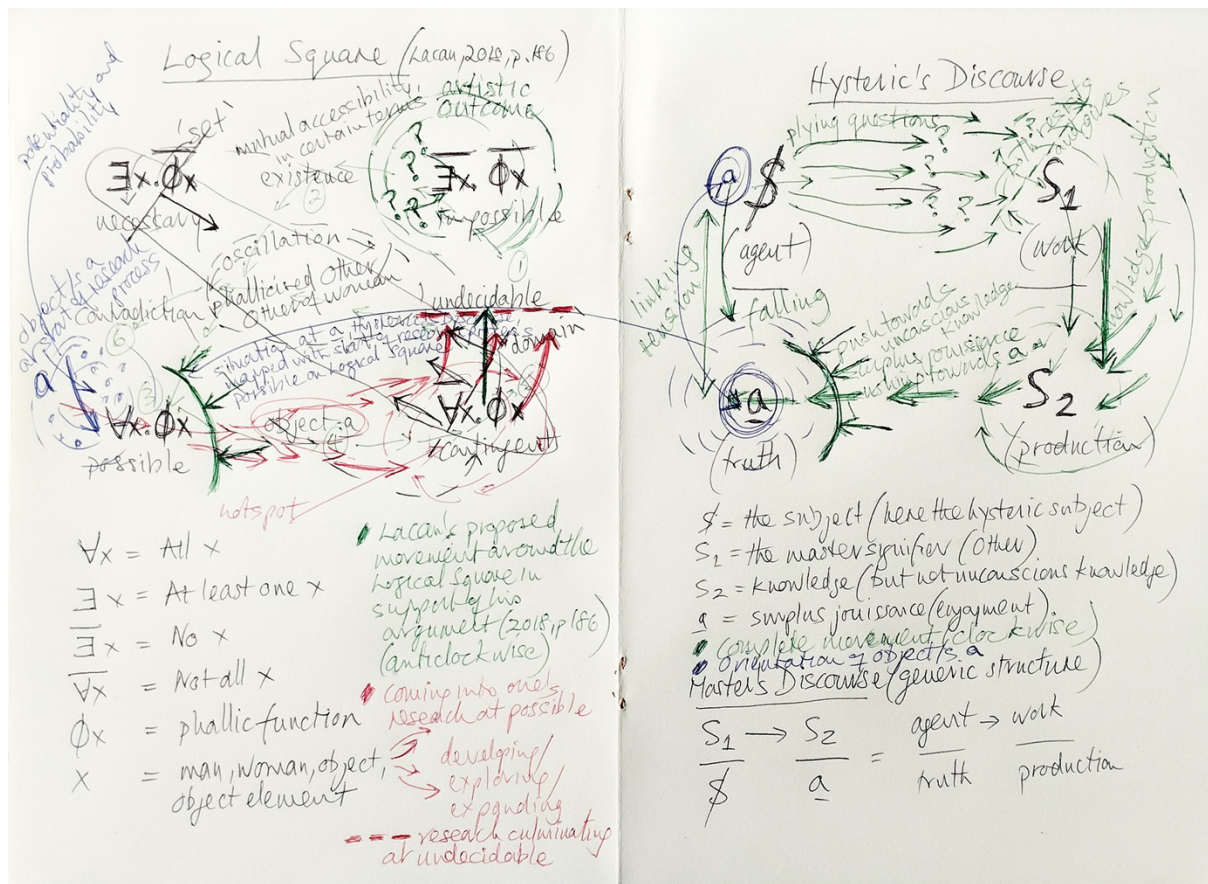 Logical Square (Lacan, 2018, p.186)
potentiality and
probability
'set'
mutual accessibility,
in certain terms
existence
②
artistic
outcome
? ? ? ?
∃x.Φ̅x̅
necessary
∃̅x̅.Φ̅x̅
impossible
oscillation
①
object/s a
at start of research
process
contradiction
phallicized Other
Other of woman
undecidable
⑥
situation at a Hysteric's Discourse
mapped with start of research process
possible on Logical Square
domain
a
③
∀x.Φx
possible
object a
④
∀̅x̅.Φx
contingent
hotspot
∀x = All x
∃x = At least one x
∃̅x̅ = No x
∀̅x̅ = Not all x
Φx = phallic function
x = man, woman, object,
object element
Lacan's proposed
movement around the
Logical Square in
support of his
argument (2018, p186)
(anticlockwise)
coming into one's
research at possible
developing/
exploring/
expanding
--- research culminating
at undecidable
Hysteric's Discourse
plying questions
? ? ? ? ?
a $
S₁
(agent)
(work)
knowledge-production
linking
tension
falling
push towards
unconscious
knowledge
surplus jouissance
pushing towards a
a
(truth)
S₂
(production)
$ = the subject (here the hysteric subject)
S₁ = the master signifier (Other)
S₂ = knowledge (but not unconscious knowledge)
a = surplus jouissance (enjoyment).
complete movement (clockwise)
Orientation of object/s a
Master's Discourse (generic structure)
S₁ → S₂ = agent → work
$ a truth production